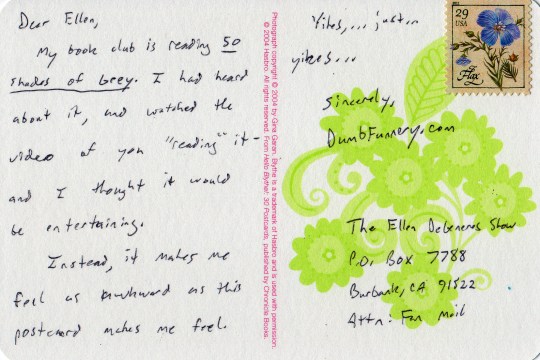 Dear Ellen,
My book club is reading 50
shades of Grey. I had heard
about it, and watched the
video of you "reading" it-
and I thought it would
be entertaining.
Instead, it makes me
feel as awkward as this
postcard makes me feel.
Photograph copyright © 2004 by Gina Garan. Blythe is a trademark of Hasbro and is used with permission.
© 2004 Hasbro. All rights reserved. From Hello Blythe!: 30 Postcards, published by Chronicle Books.
Yikes,... just...
yikes...
Sincerely,
DumbFunnery.com
29
USA
Flax
The Ellen DeGeneres Show
P.O. Box 7788
Burbank, CA 91522
Attn: Fan Mail